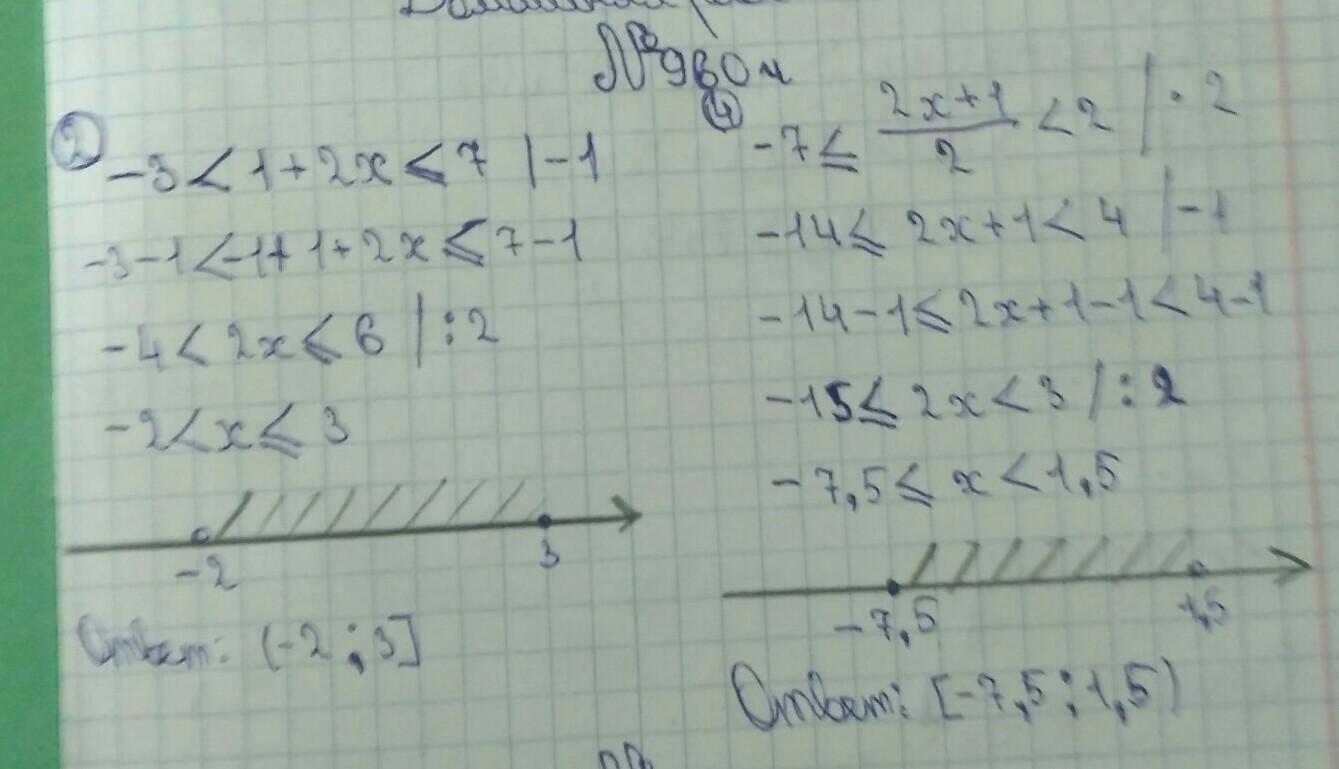 Домашняя
№960м
②
-3 < 1 + 2x ⩽ 7 | -1
-3-1 < -1+1+2x ⩽ 7-1
-4 < 2x ⩽ 6 | :2
-2 < x ⩽ 3
-2 3
Ответ: (-2 ; 3]
④
-7 ⩽ \frac{2x+1}{2} < 2 | · 2
-14 ⩽ 2x+1 < 4 | -1
-14-1 ⩽ 2x+1-1 < 4-1
-15 ⩽ 2x < 3 | : 2
-7,5 ⩽ x < 1,5
-7,5 1,5
Ответ: [-7,5 ; 1,5)